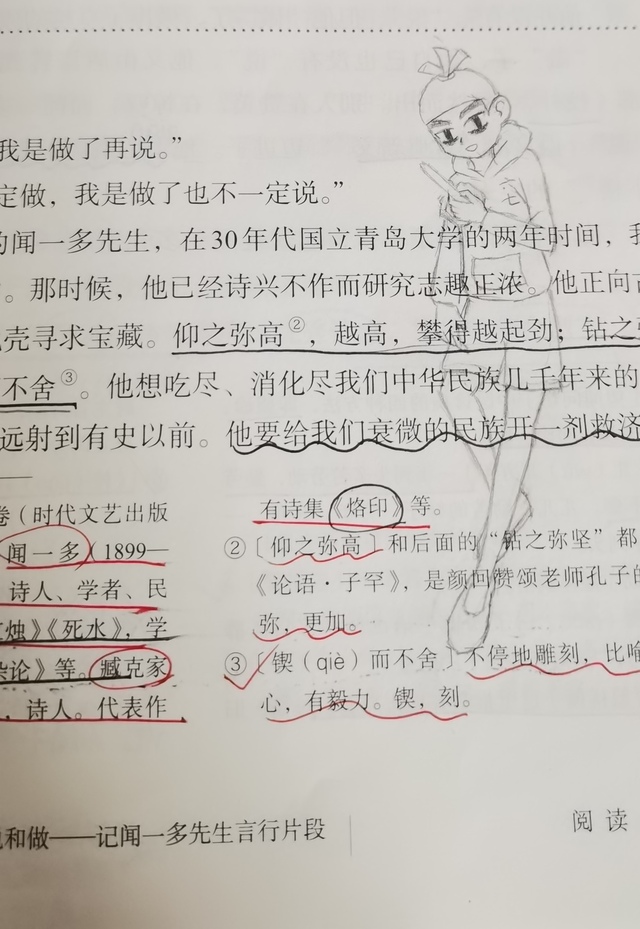 我是做了再说。”
定做，我是做了也不一定说。”
的闻一多先生，在30年代国立青岛大学的两年时间，我
。那时候，他已经诗兴不作而研究志趣正浓。他正向古
壳寻求宝藏。仰之弥高②，越高，攀得越起劲；钻之弥
不舍③。他想吃尽、消化尽我们中华民族几千年来的
远射到有史以前。他要给我们衰微的民族开一剂救济
卷（时代文艺出版
闻一多（1899—
诗人、学者、民
烛》《死水》，学
论》等。臧克家
，诗人。代表作
有诗集《烙印》等。
②〔仰之弥高〕和后面的“钻之弥坚”都
《论语·子罕》，是颜回赞颂老师孔子的
弥，更加。
③〔锲（qiè）而不舍〕不停地雕刻，比喻
心，有毅力。锲，刻。
和做——记闻一多先生言行片段
阅读